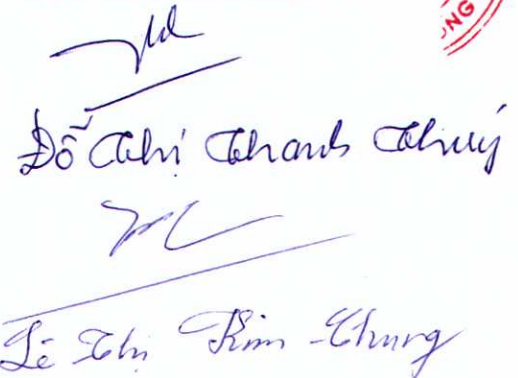 NG
Đỗ Thị Thanh Thuý
Lê Thị Kim Chung